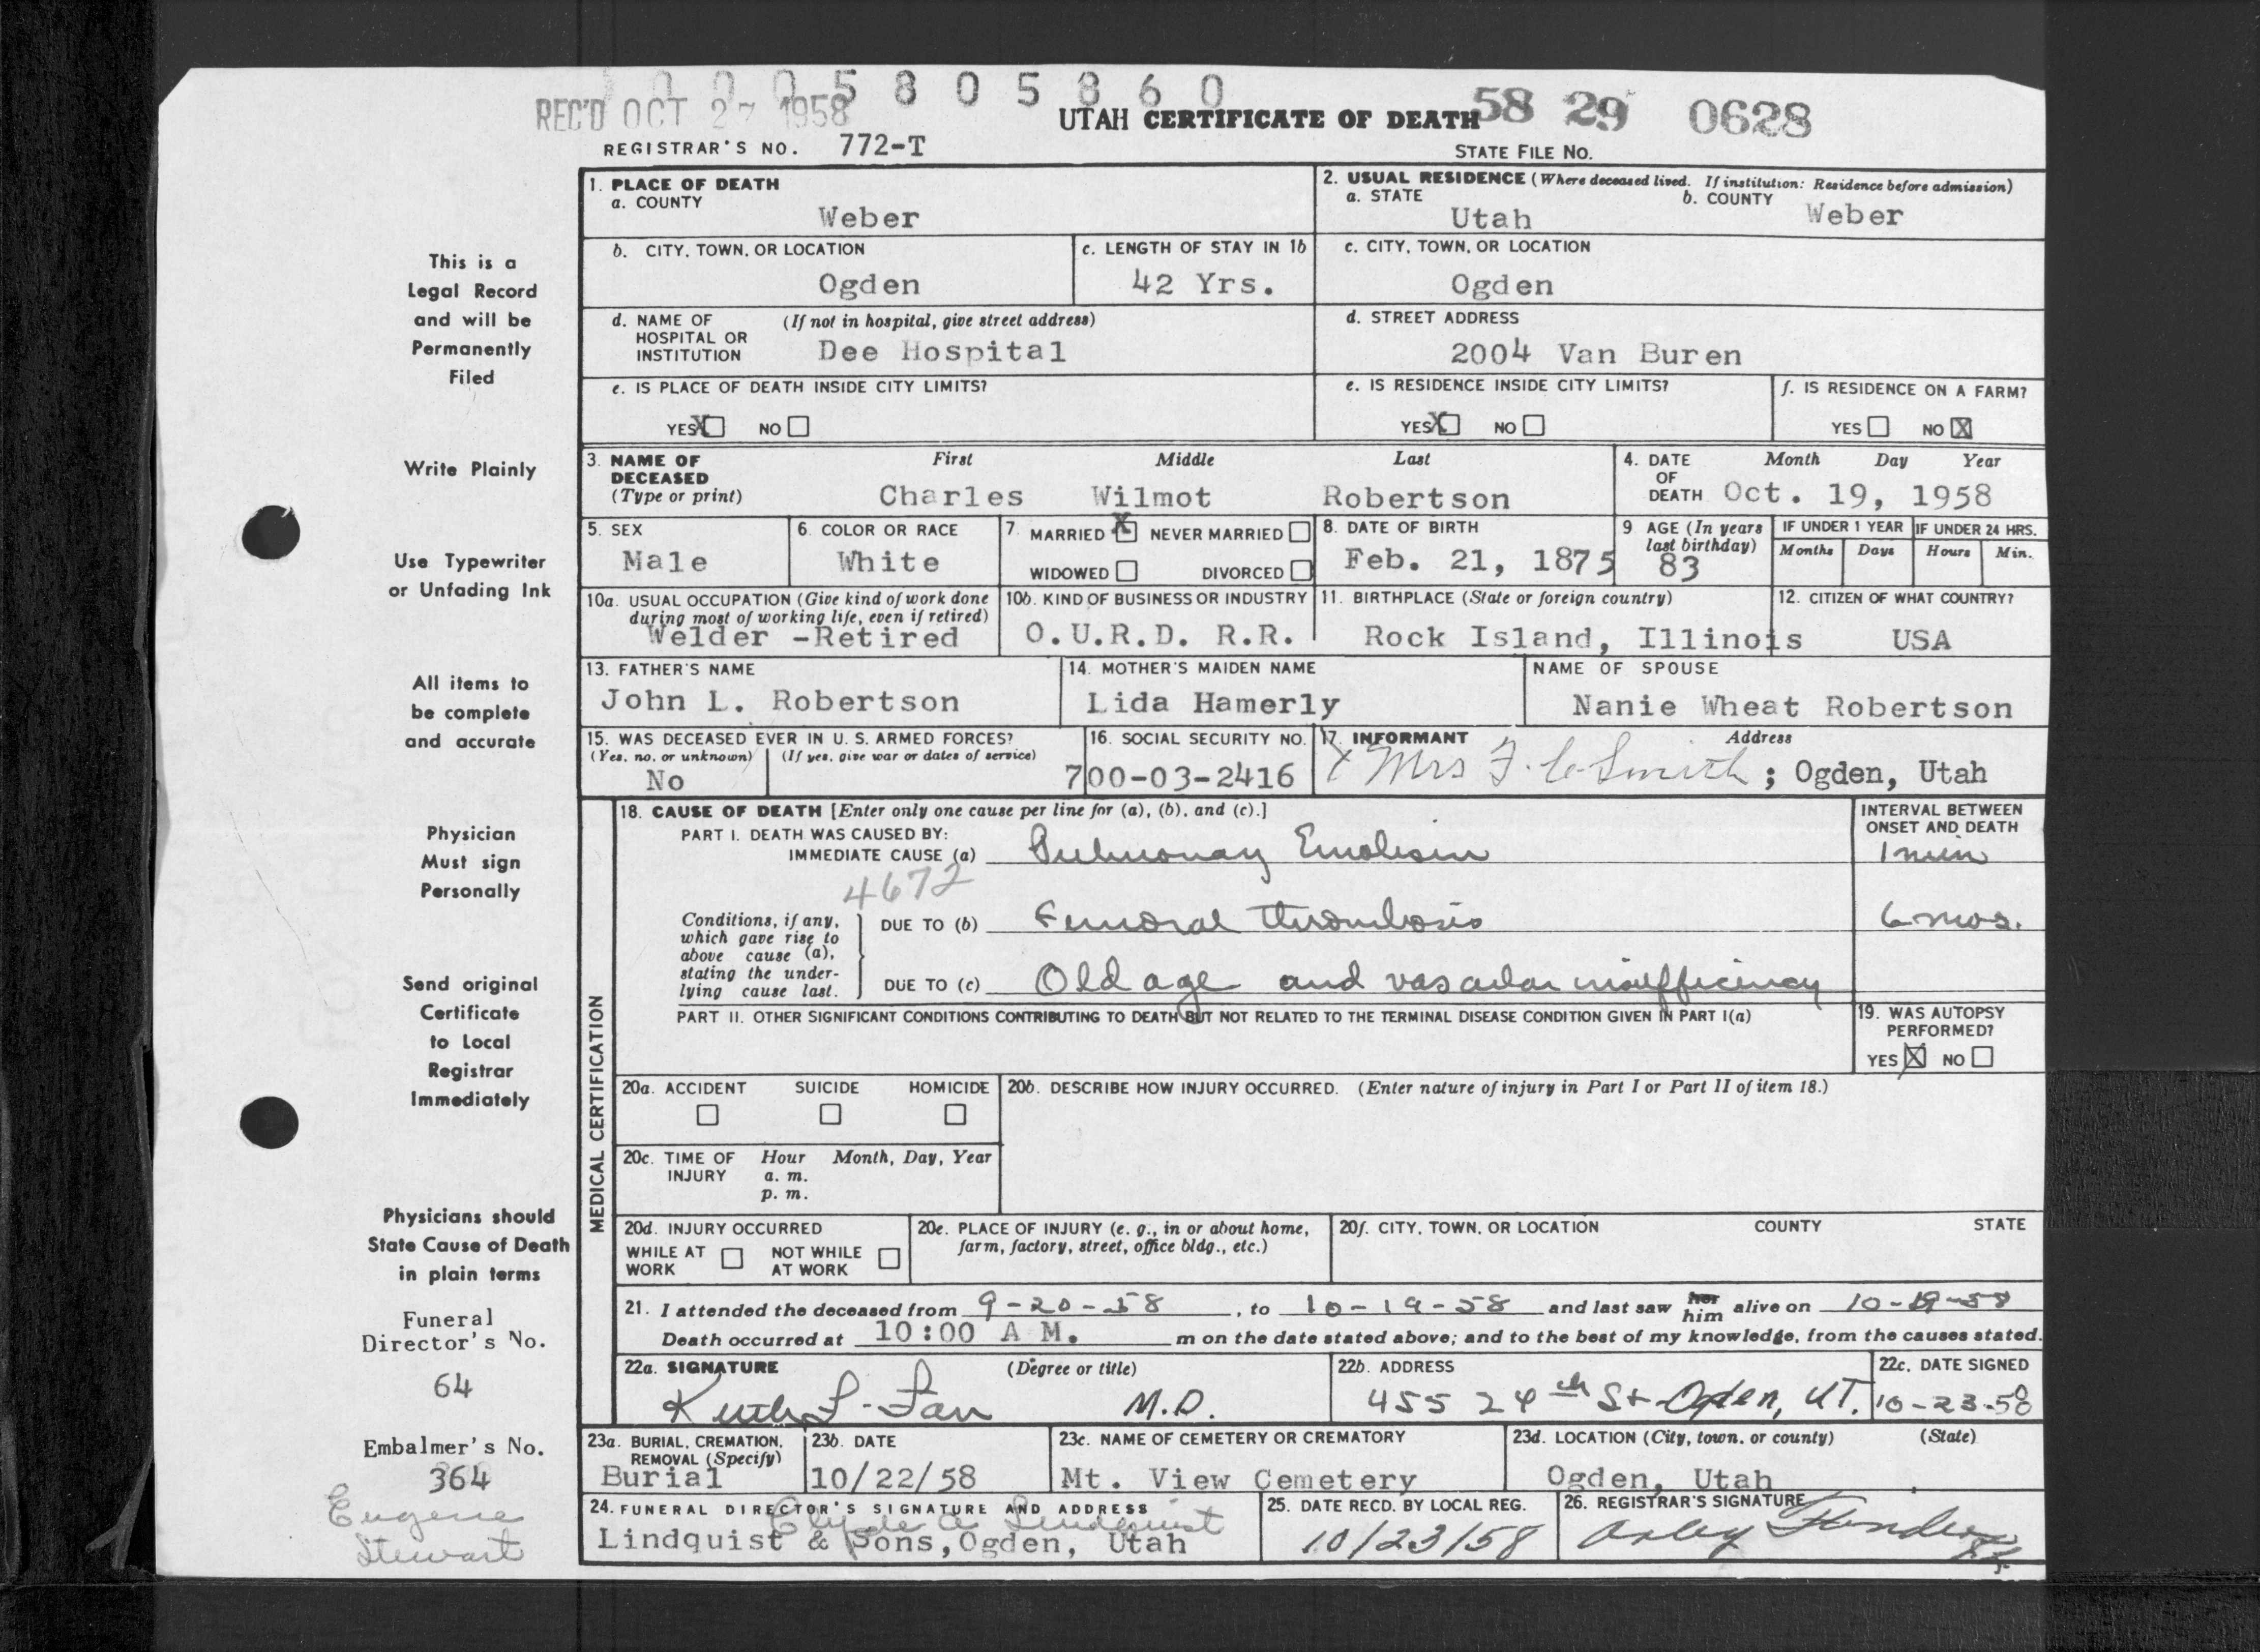 0005805860
REC'D OCT 27 1958
UTAH CERTIFICATE OF DEATH 58 29 0628
REGISTRAR'S NO. 772-T
STATE FILE NO.
This is a
Legal Record
and will be
Permanently
Filed
Write Plainly
Use Typewriter
or Unfading Ink
All items to
be complete
and accurate
Physician
Must sign
Personally
Send original
Certificate
to Local
Registrar
Immediately
Physicians should
State Cause of Death
in plain terms
Funeral
Director's No.
64
Embalmer's No.
364
Eugene
Stewart
1. PLACE OF DEATH
a. COUNTY
Weber
2. USUAL RESIDENCE (Where deceased lived. If institution: Residence before admission)
a. STATE b. COUNTY
Utah Weber
b. CITY, TOWN, OR LOCATION
Ogden
c. LENGTH OF STAY IN 1b
42 Yrs.
c. CITY, TOWN, OR LOCATION
Ogden
d. NAME OF (If not in hospital, give street address)
HOSPITAL OR
INSTITUTION Dee Hospital
d. STREET ADDRESS
2004 Van Buren
e. IS PLACE OF DEATH INSIDE CITY LIMITS?
YES X NO
e. IS RESIDENCE INSIDE CITY LIMITS?
YES X NO
f. IS RESIDENCE ON A FARM?
YES NO X
3. NAME OF First Middle Last
DECEASED
(Type or print) Charles Wilmot Robertson
4. DATE Month Day Year
OF
DEATH Oct. 19, 1958
5. SEX
Male
6. COLOR OR RACE
White
7. MARRIED X NEVER MARRIED
WIDOWED DIVORCED
8. DATE OF BIRTH
Feb. 21, 1875
9 AGE (In years
last birthday)
83
IF UNDER 1 YEAR
Months Days
IF UNDER 24 HRS.
Hours Min.
10a. USUAL OCCUPATION (Give kind of work done
during most of working life, even if retired)
Welder -Retired
10b. KIND OF BUSINESS OR INDUSTRY
O.U.R.D. R.R.
11. BIRTHPLACE (State or foreign country)
Rock Island, Illinois
12. CITIZEN OF WHAT COUNTRY?
USA
13. FATHER'S NAME
John L. Robertson
14. MOTHER'S MAIDEN NAME
Lida Hamerly
NAME OF SPOUSE
Nanie Wheat Robertson
15. WAS DECEASED EVER IN U. S. ARMED FORCES?
(Yes, no, or unknown) (If yes, give war or dates of service)
No
16. SOCIAL SECURITY NO.
700-03-2416
17. INFORMANT Address
X Mrs F. C. Smith ; Ogden, Utah
MEDICAL CERTIFICATION
18. CAUSE OF DEATH [Enter only one cause per line for (a), (b), and (c).]
PART I. DEATH WAS CAUSED BY:
IMMEDIATE CAUSE (a) Pulmonary Embolism
4672
Conditions, if any,
which gave rise to
above cause (a),
stating the under-
lying cause last.
DUE TO (b) Femoral thrombosis
DUE TO (c) Old age and vascular insufficiency
INTERVAL BETWEEN
ONSET AND DEATH
1 min
6 mos.
PART II. OTHER SIGNIFICANT CONDITIONS CONTRIBUTING TO DEATH BUT NOT RELATED TO THE TERMINAL DISEASE CONDITION GIVEN IN PART I(a)
19. WAS AUTOPSY
PERFORMED?
YES X NO
20a. ACCIDENT SUICIDE HOMICIDE
20b. DESCRIBE HOW INJURY OCCURRED. (Enter nature of injury in Part I or Part II of item 18.)
20c. TIME OF Hour Month, Day, Year
INJURY a. m.
p. m.
20d. INJURY OCCURRED
WHILE AT NOT WHILE
WORK AT WORK
20e. PLACE OF INJURY (e. g., in or about home,
farm, factory, street, office bldg., etc.)
20f. CITY, TOWN, OR LOCATION COUNTY STATE
21. I attended the deceased from 9-20-58, to 10-19-58 and last saw her him alive on 10-19-58
Death occurred at 10:00 A M. m on the date stated above; and to the best of my knowledge, from the causes stated.
22a. SIGNATURE (Degree or title)
M.D.
22b. ADDRESS
455 24th St Ogden, UT.
22c. DATE SIGNED
10-23-58
23a. BURIAL, CREMATION,
REMOVAL (Specify)
Burial
23b. DATE
10/22/58
23c. NAME OF CEMETERY OR CREMATORY
Mt. View Cemetery
23d. LOCATION (City, town, or county) (State)
Ogden, Utah
24. FUNERAL DIRECTOR'S SIGNATURE AND ADDRESS
Clyde A Lindquist
Lindquist & Sons, Ogden, Utah
25. DATE RECD. BY LOCAL REG.
10/23/58
26. REGISTRAR'S SIGNATURE